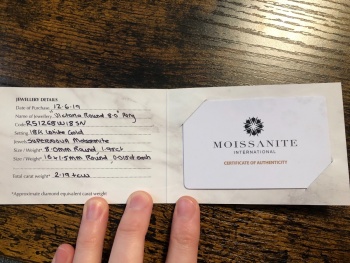 JEWELLERY DETAILS
Date of Purchase 12-6-19
Name of Jewellery "Victoria Round 8.0" Ring
Code RS1268W18SN
Setting 18K White Gold
Jewels Supernova Moissanite
Size / Weight* 8.0mm Round 1.95ct
Size / Weight* 16 x 1.5mm Round 0.015ct each
Total carat weight* 2.19 tcw
*Approximate diamond equivalent carat weight
MOISSANITE
INTERNATIONAL
CERTIFICATE OF AUTHENTICITY